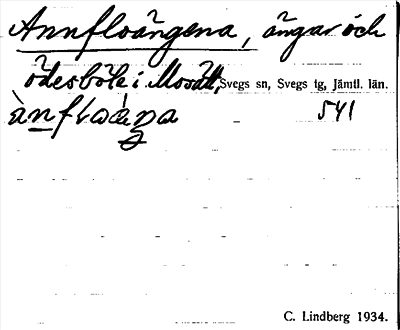 Annfloängena, ängar och
ödesböle i Morätt, Svegs sn, Svegs tg, Jämtl. län.
541
C. Lindberg 1934.